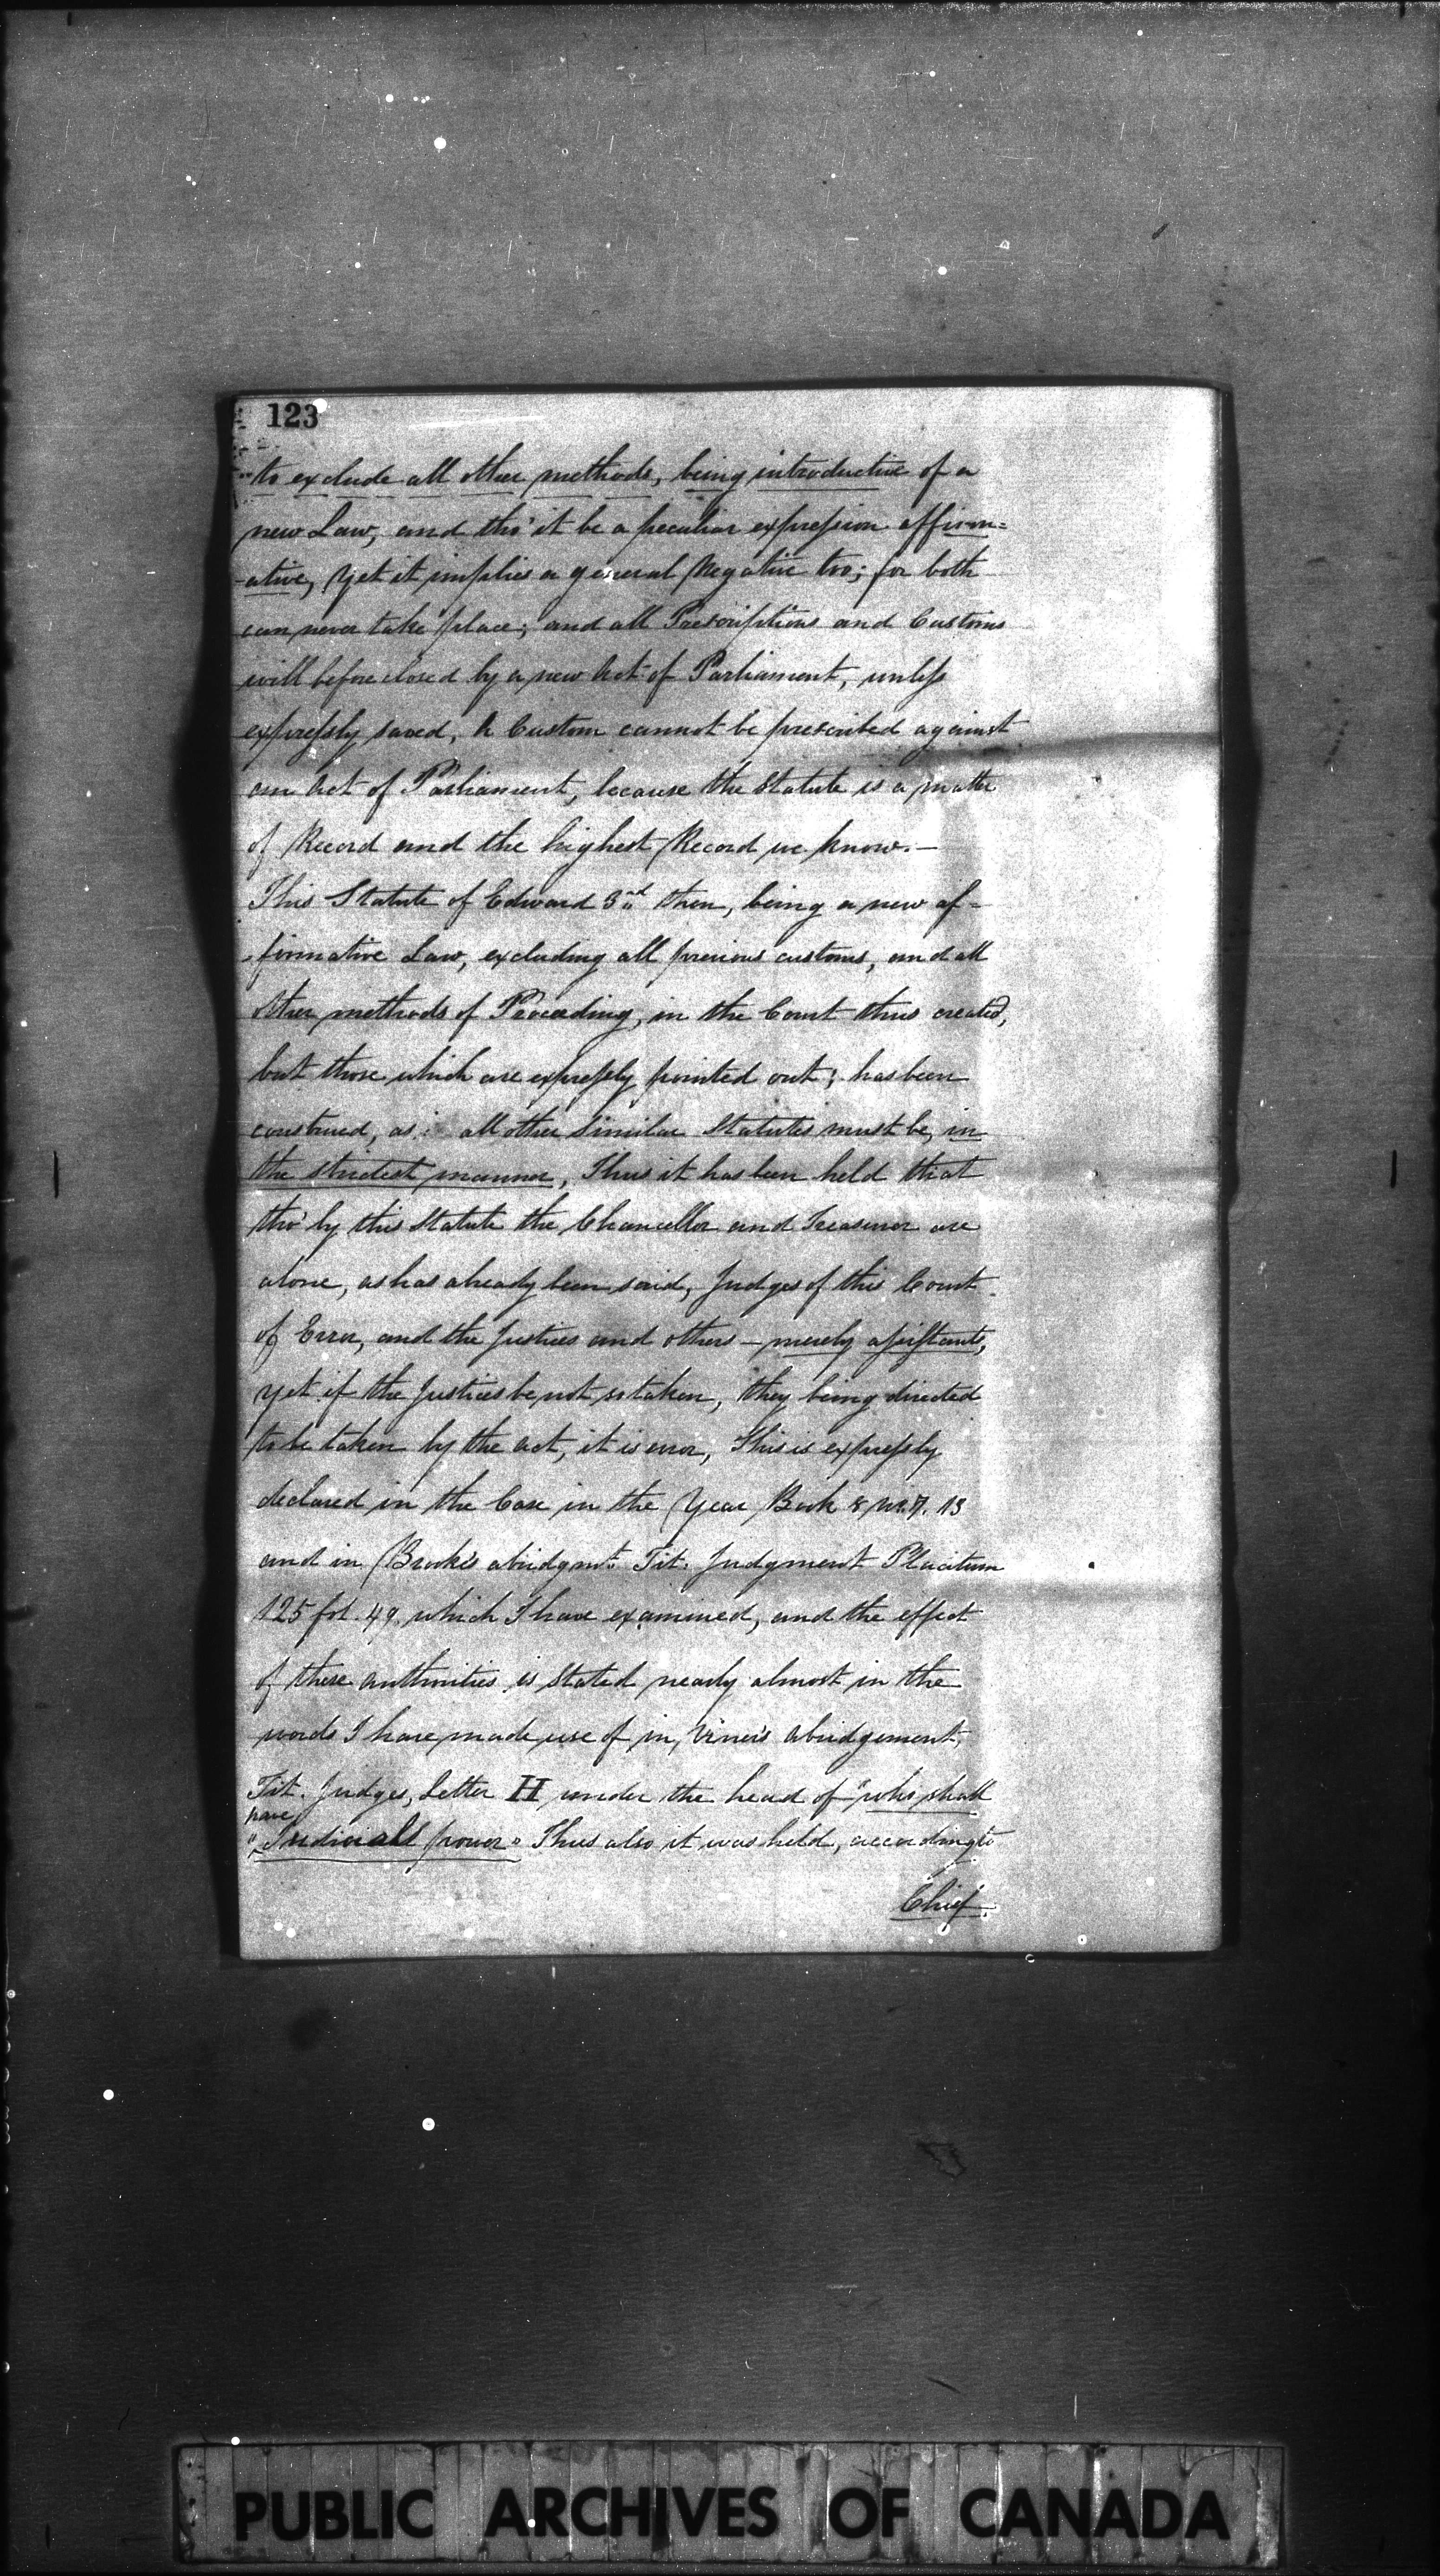 123
to exclude all other methods, being introductive of a
new Law, and tho' it be a peculiar expression affirm=
-ative, yet it implies a general Negative too; for both
can never take place; and all Prescriptions and Customs
will be foreclosed by a new Act of Parliament, unless
expressly saved, A Custom cannot be prescribed against
an Act of Parliament, because the Statute is a matter
of Record and the highest Record we know.—
This Statute of Edward 3rd then, being a new af-
-firmative Law, excluding all previous customs, and all
other methods of Proceeding, in the Court thus created,
but those which are expressly pointed out; has been
construed, as all other similar Statutes must be, in
the strictest manner, Thus it has been held that
tho' by this Statute the Chancellor and Treasurer are
alone, as has already been said, Judges of this Court
of Error, and the Justices and others — merely assistants,
yet if the Justices be not so taken, they being directed
to be taken by the Act, it is error, This is expressly
declared in the Case in the Year Book 8 13
and in Brooke's abridgmt. Tit: Judgment Placitum
125 fol. 49. which I have examined, and the effect
of these authorities is stated nearly almost in the
words I have made use of in, Viner's abridgement,
Tit. Judges, Letter H under the head of "who shall
have
"Judiciall power" Thus also it was held, according to
Chief
PUBLIC ARCHIVES OF CANADA